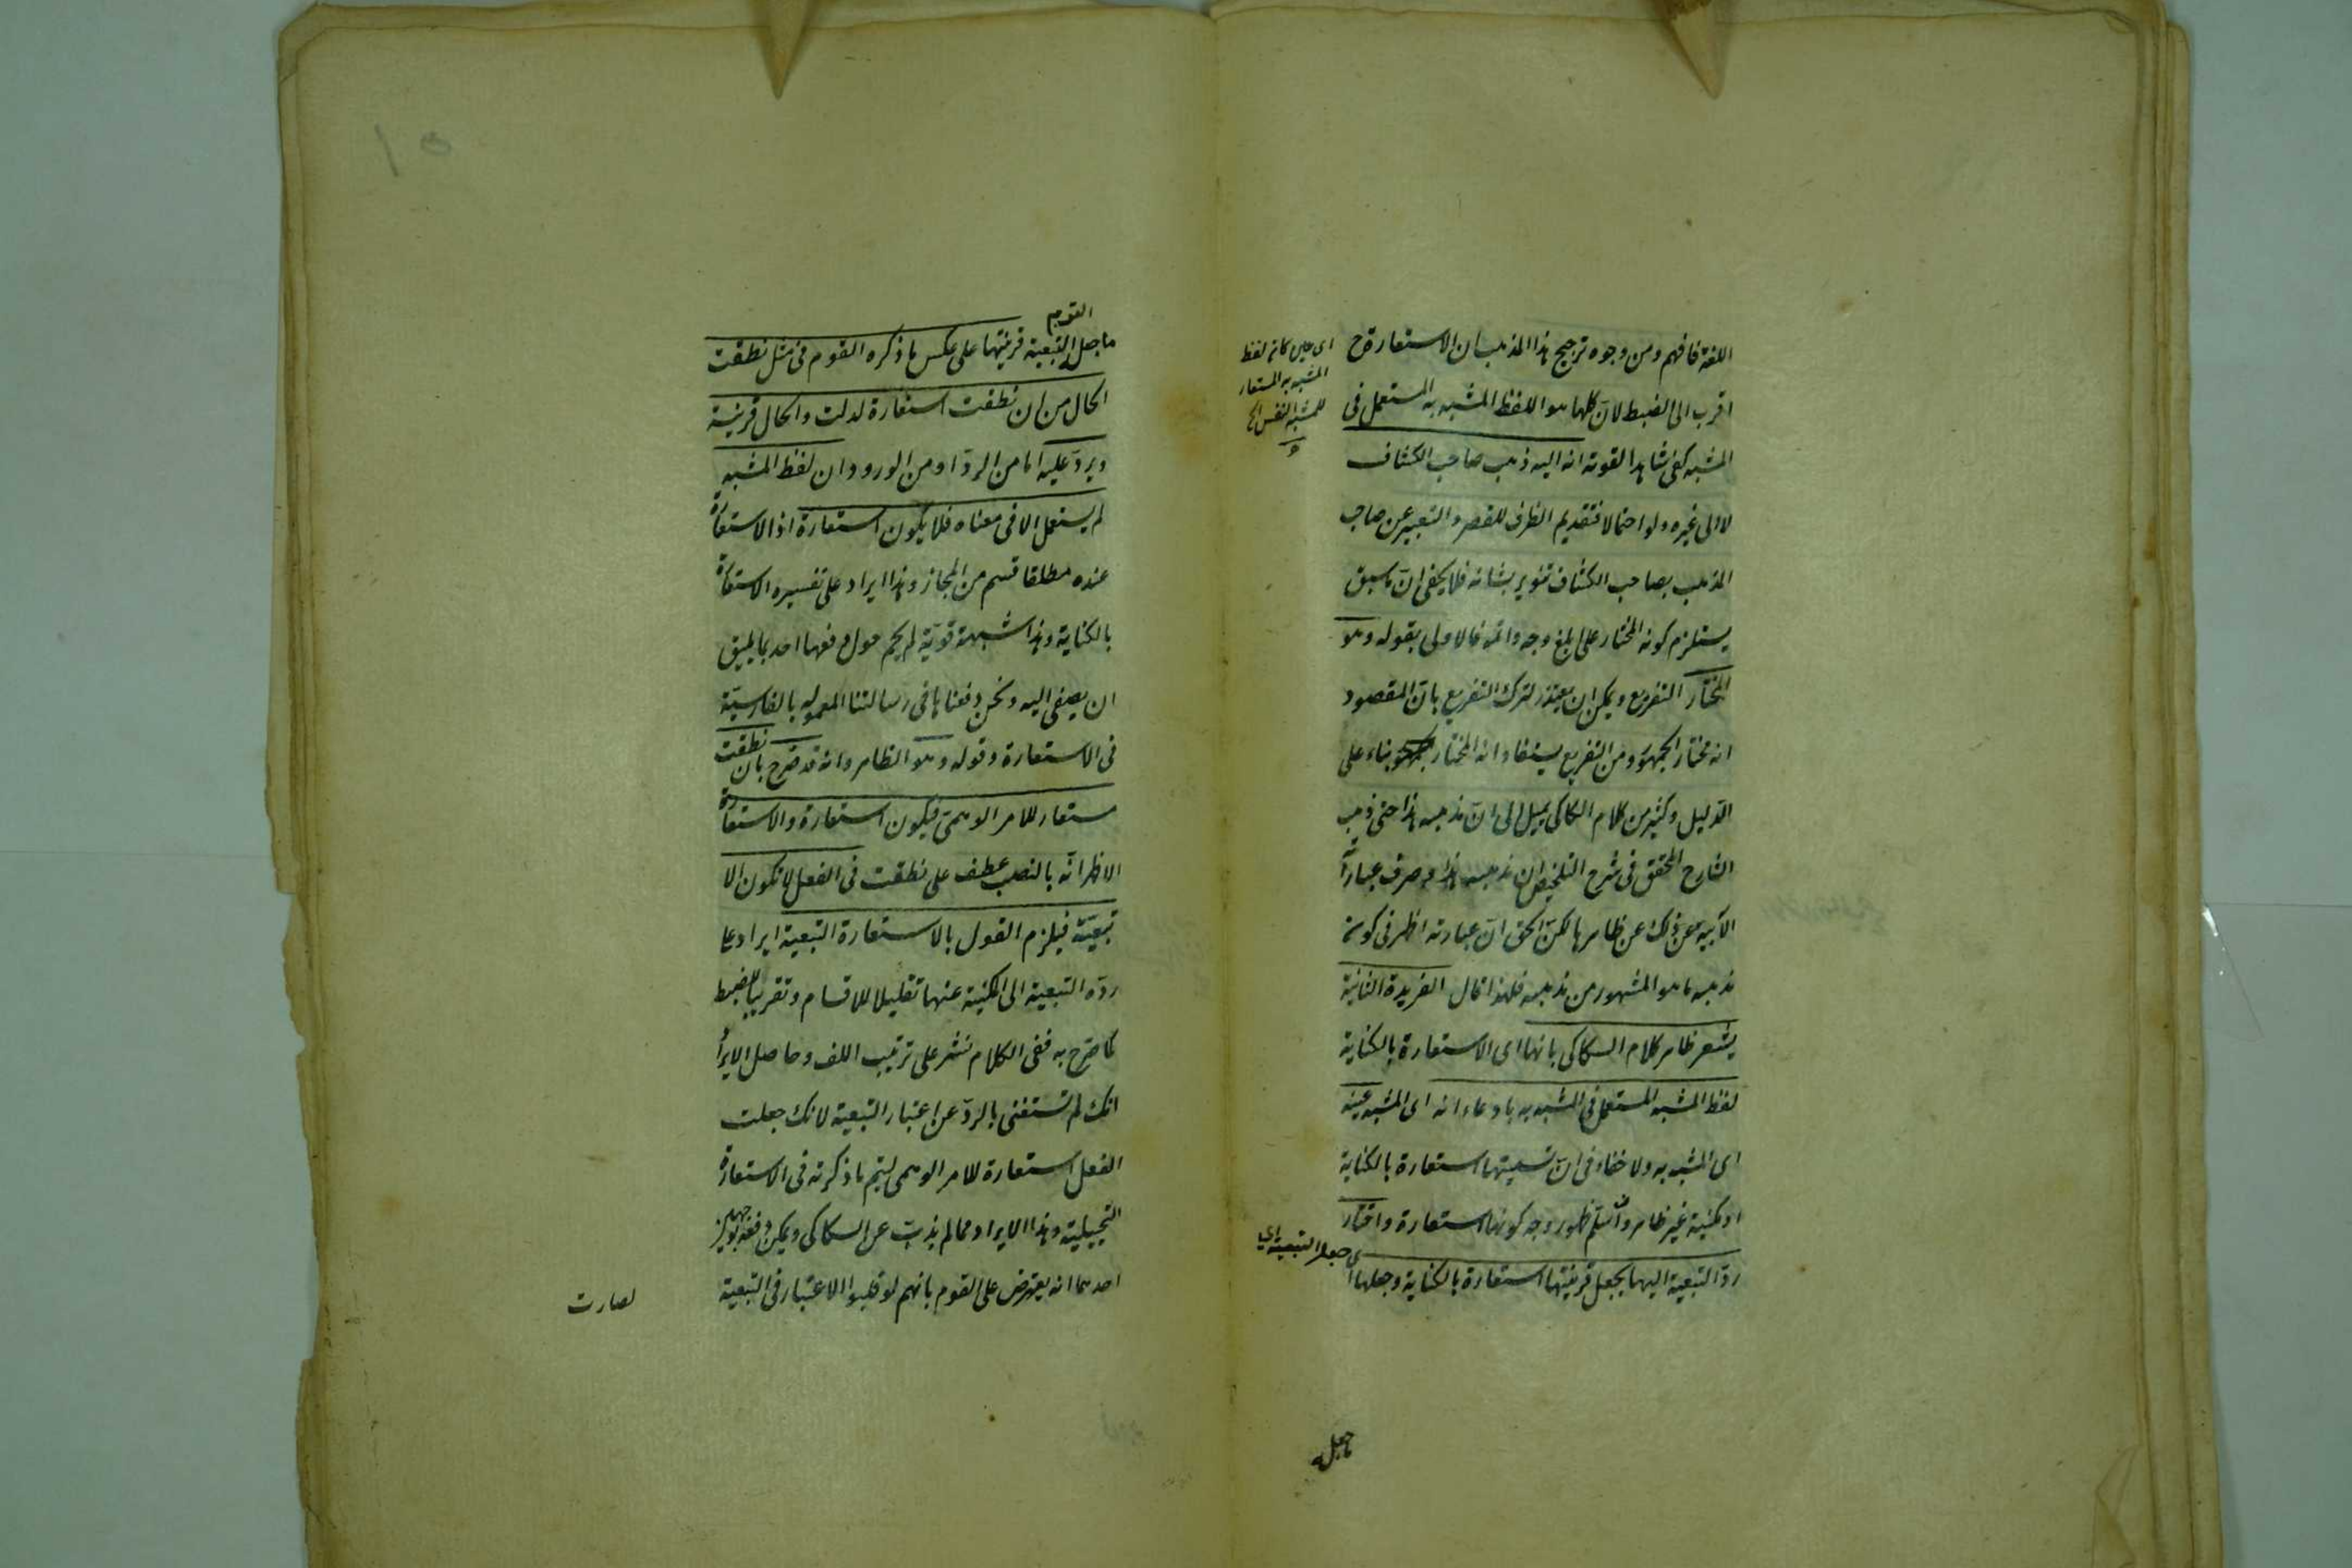 اللغة فافهم ومن وجوه ترجيح هذا المذهب ان الاستعارة ح
اقرب الى الضبط لانّ كلها هو اللفظ المشبه به المستعمل فى
المشبه كفى شاهدا لقوته انه اليه ذهب صاحب الكشاف
لا الى غيره ولو احتمالا فتقديم الظرف للقصر والتعبير عن صاحب
المذهب بصاحب الكشاف تنوير بشانه فلا يخفى انّ ما سبق
يستلزم كونه المختار على ابلغ وجه واتمه فالاولى بقوله وهو
المختار التفريع ويمكن ان يعتذر لترك التفريع بانّ المقصود
انه مختار الجمهور ومن التفريع يستفاد انه المختار بناء على
الدليل وكثير من كلام السكاكى يميل الى انّ مذهبه هذا حتى ذهب
الشارح المحقق فى شرح التلخيص ان مذهبه هذا وصرف عباراته
الآبية عن ذلك عن ظاهرها لكنّ الحق انّ عبارته اظهر فى كونه
مذهبه ما هو المشهور من مذهبه فلهذا قال الفريدة الثانية
يشعر ظاهر كلام السكاكى بانها اى الاستعارة بالكناية
لفظ المشبه المستعمل فى المشبه به بادعاء انه اى المشبه عينه
اى المشبه به ولا خفاء فى انّ تسميتها استعارة بالكناية
او مكنية غير ظاهر وان سلم ظهور وجه كونها استعارة واختار
ردّ التبعية اليها بجعل قرينتها استعارة بالكناية وجعلها
اى جعل التبعية اى
اى حين كانه لفظ
المشبه به المستعار
للمشبه النفس الخ
ما جعل
القوم
ما جعل التبعية قرينتها على عكس ما ذكره القوم فى مثل نطقت
الحال من ان نطقت استعارة لدلت والحال قرينة
ويردّ عليه اما من الردّ او من الورود ان لفظ المشبه
لم يستعمل الا فى معناه فلا يكون استعارة اذ الاستعارة
عنده مطلقا قسم من المجاز وهذا ايراد على تفسيره الاستعارة
بالكناية وهذا شبهة قويّة لم يحم حول دفعها احد بما يليق
ان يصغى اليه ونحن دفعناها فى رسالتنا المعموله بالفارسيّة
فى الاستعارة وقوله وهو الظاهر وانه قد صرّح بان نطقت
مستعار للامر الوهمى فيكون استعارة والاستعارة
الاظهر انّه بالنصب عطف على نطقت فى الفعل لا تكون الا
تبعيّة فيلزم القول بالاستعارة التبعية ايراد على
ردّه التبعية الى المكنية عنها تقليلا للاقسام وتقريبا للضبط
كما صرّح به ففى الكلام نشر على ترتيب اللف وحاصل الايراد
انك لم تستغنى بالردّ عن اعتبار التبعية لانك جعلت
الفعل استعارة للامر الوهمى ليتم ما ذكرته فى الاستعارة
التخييلية وهذا الايراد مما لم يذبّ عن السكاكى ويمكن دفعه بوجهين
احدهما انه يعترض على القوم بانهم لو قلبوا الاعتبار فى التبعية
لصارت